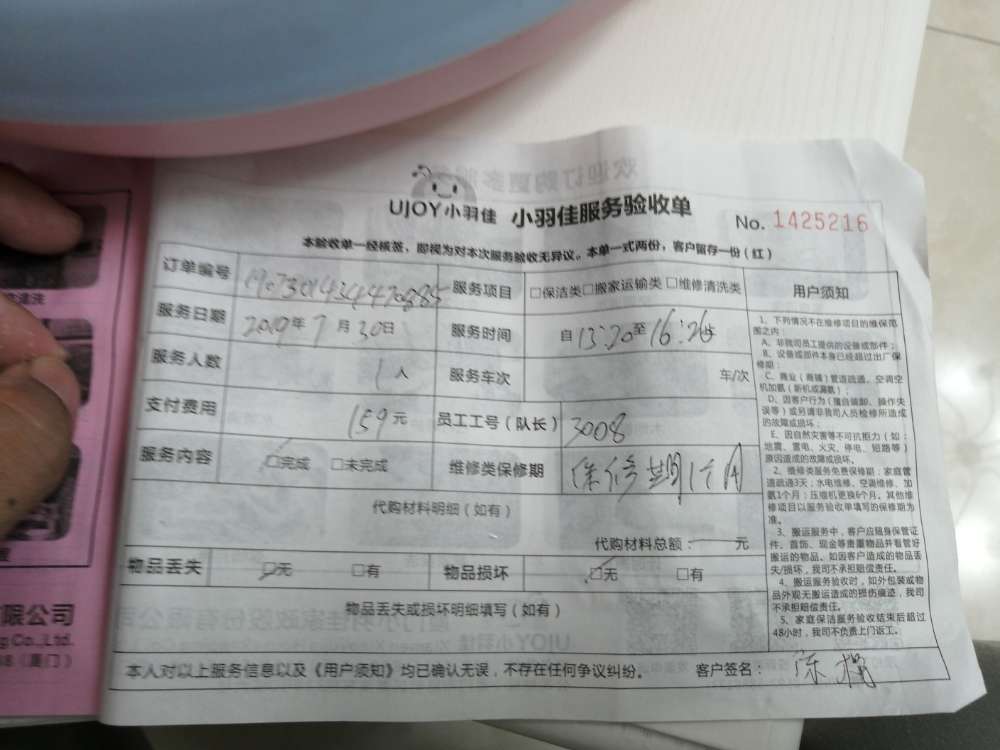 UJOY小羽佳 小羽佳服务验收单
No. 1425216
本验收单一经核签，即视为对本次服务验收无异议。本单一式两份，客户留存一份（红）
订单编号 服务项目 □保洁类□搬家运输类□维修清洗类 用户须知
服务日期 2019年7月30日 服务时间 自13:20至16:26
服务人数 1人 服务车次 车/次
支付费用 159元 员工工号（队长） 3008
服务内容 □完成 □未完成 维修类保修期 保修期1个月
代购材料明细（如有）
代购材料总额： 元
物品丢失 □无 □有 物品损坏 □无 □有
物品丢失或损坏明细填写（如有）
本人对以上服务信息以及《用户须知》均已确认无误，不存在任何争议纠纷。 客户签名：
1、下列情况不在维修项目的维保范
围之内：
A、非我司员工提供的设备或部件；
B、设备或部件本身已经超过出厂保
修期；
C、商业（商铺）管道疏通、空调空
机加氨（新机或漏氨）
D、因客户行为（擅自装卸、操作失
误等）或另请非我司人员检修所造成
的故障或损坏；
E、因自然灾害等不可抗拒力（如：
地震、雷电、火灾、停电、短路等）
原因造成的故障或损坏。
2、维修类服务免费保修期：家庭管
道疏通3天；水电维修、空调维修、加
氨1个月；压缩机更换6个月。其他维
修项目以服务验收单填写的保修期为
准。
3、搬运服务中，客户应随身保管证
件、首饰、现金等贵重物品并看管好
搬运的物品。如因客户造成的物品丢
失/损坏，我司不承担赔偿责任。
4、搬运服务验收时，如外包装或物
品外观无搬运造成的损伤痕迹，我司
不承担赔偿责任。
5、家庭保洁服务验收结束后超过
48小时，我司不负责上门返工。
限公司
g Co.,Ltd.
8（厦门）